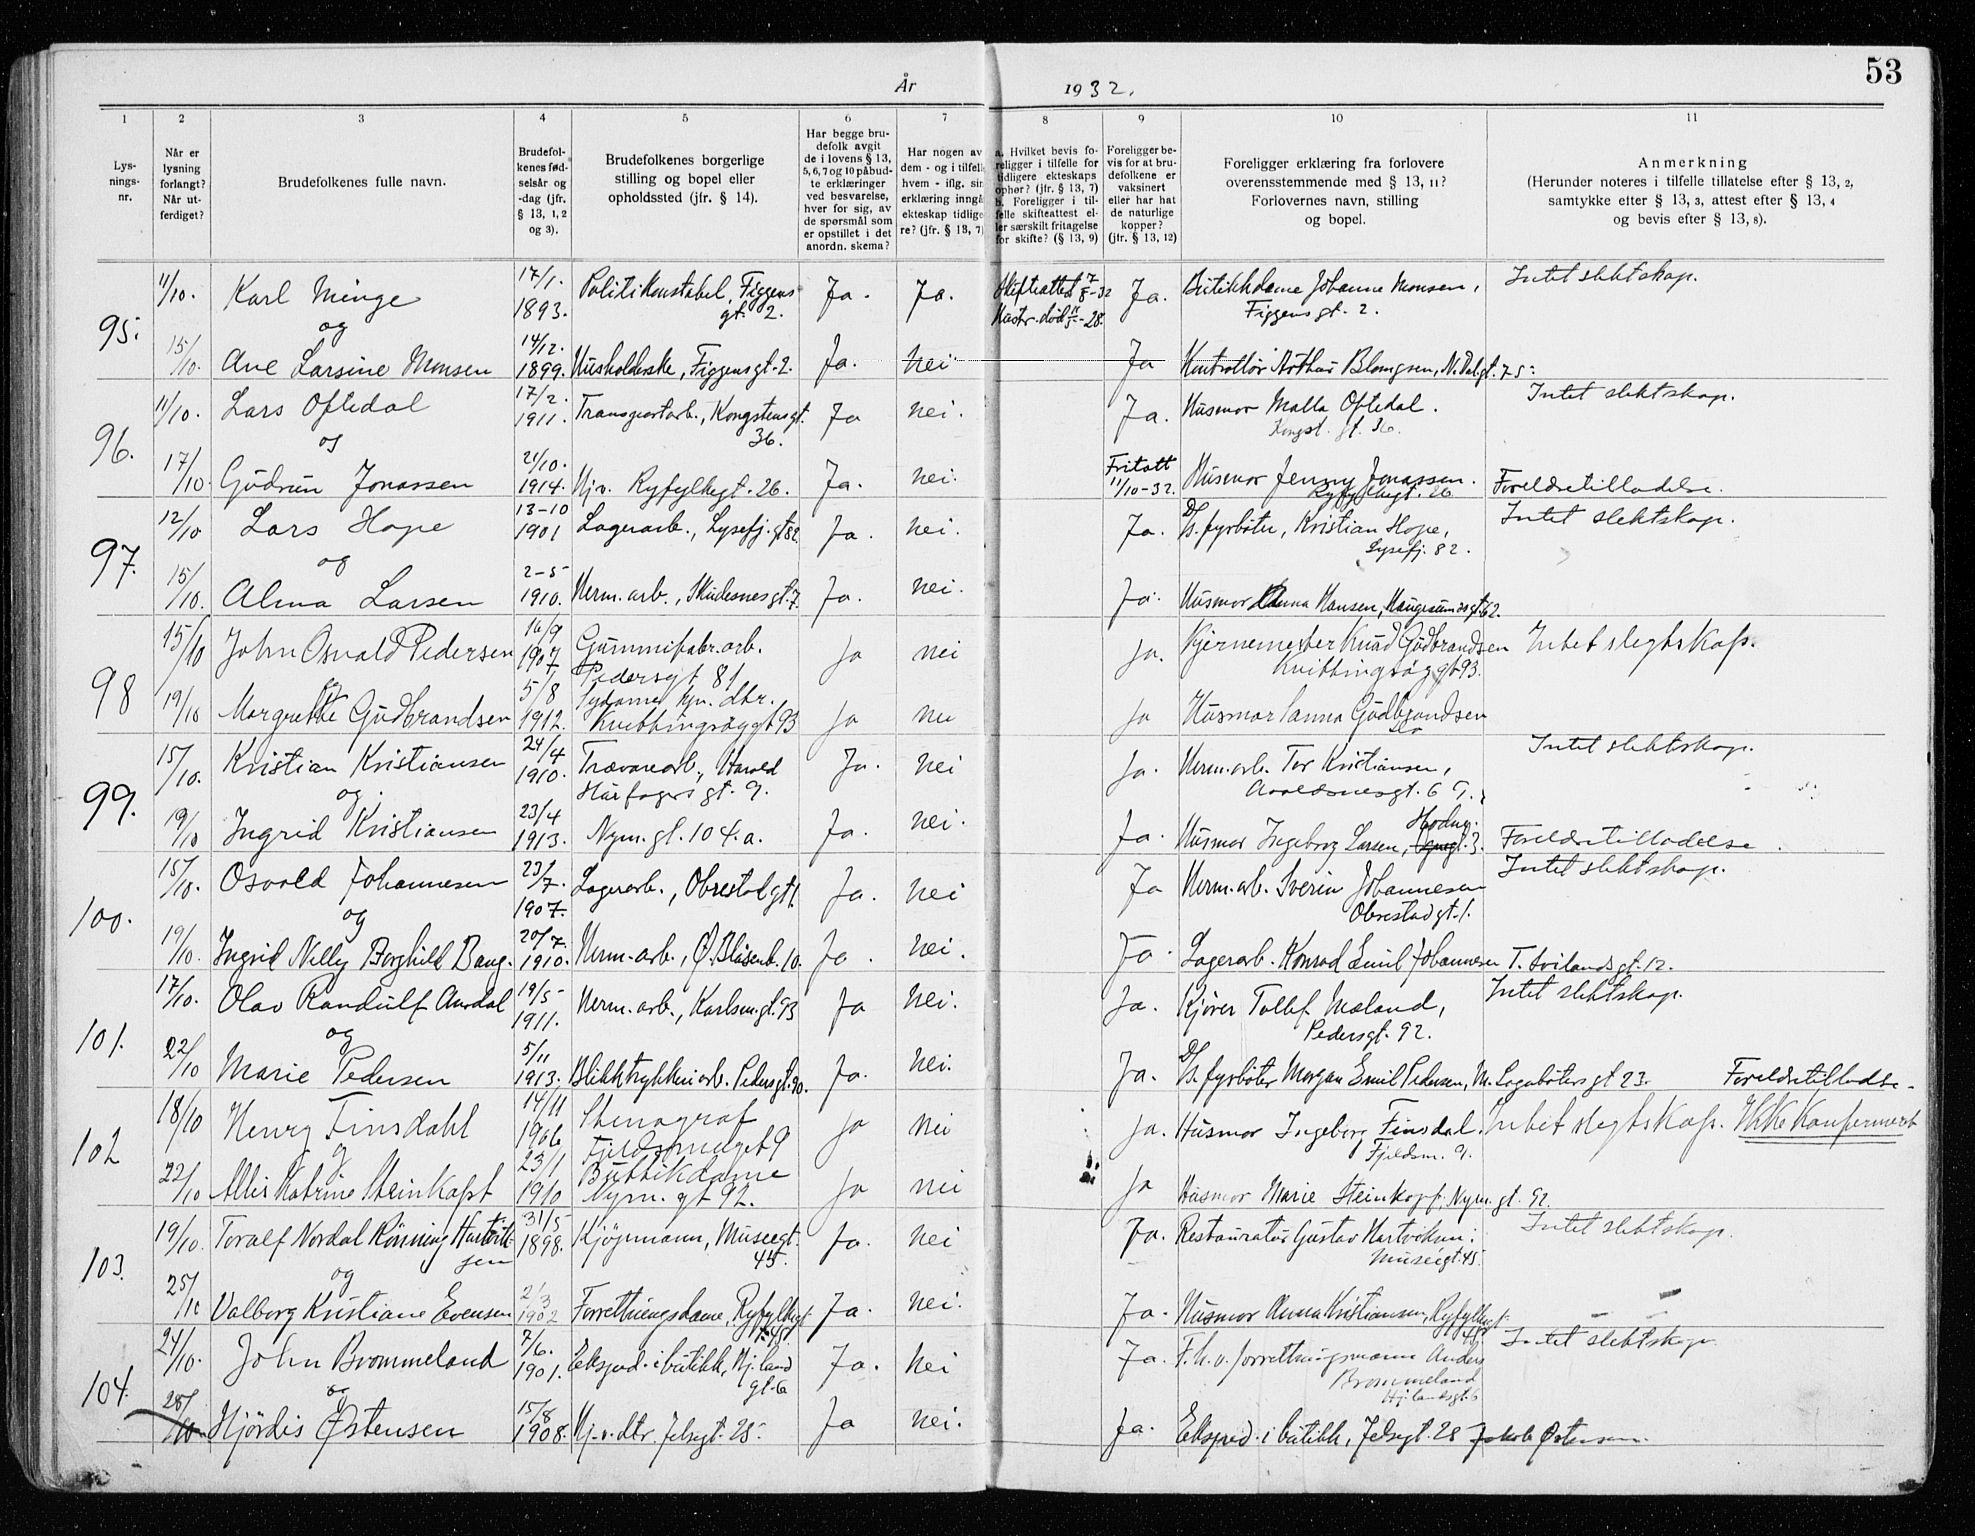 53
År 1932.
1 2 3 4 5 6 7 8 9 10 11
Lysningsnr.
Når er lysning forlangt? Når utferdiget?
Brudefolkenes fulle navn.
Brudefolkenes fødselsår og -dag (jfr. § 13, 1, 2 og 3).
Brudefolkenes borgerlige stilling og bopel eller opholdssted (jfr. § 14).
Har begge brudefolk avgit de i lovens § 13, 5, 6, 7 og 10 påbudte erklæringer ved besvarelse, hver for sig, av de spørsmål som er opstillet i det anordn. skema?
Har nogen av dem - og i tilfelle hvem - iflg. sin erklæring inngått ekteskap tidligere? (jfr. § 13, 7)
a. Hvilket bevis foreligger i tilfelle for tidligere ekteskaps ophør? (jfr. § 13, 7) b. Foreligger i tilfelle skifteattest eller særskilt fritagelse for skifte? (§ 13, 9)
Foreligger bevis for at brudefolkene er vaksinert eller har hat de naturlige kopper? (jfr. § 13, 12)
Foreligger erklæring fra forlovere overensstemmende med § 13, 11? Forlovernes navn, stilling og bopel.
Anmerkning (Herunder noteres i tilfelle tillatelse efter § 13, 2, samtykke efter § 13, 3, attest efter § 13, 4 og bevis efter § 13, 8).
95. 11/10. Karl Minge 17/1. 1893. Politikonstabel, Figgens gt. 2. Ja. Ja. Skifteattest 7/8-32 Ja. Butikkdame Johanne Monsen, Figgens gt. 2. Intet slektskap.
og
15/10. Ane Larsine Monsen 14/12. 1899. Husholderske, Figgensgt. 2. Ja. Nei Ja Kontrollør Arthur Blomgsen, N. Dalgt. 75
96. 11/10. Lars Oftedal 17/2. 1911. Transportarb., Kongstensgt. 36. Ja Nei. Ja. Husmor Malla Oftedal. Kongst. gt. 36. Intet slektskap.
og
17/10. Gudrun Jonassen 21/10. 1914. Hj.v. Ryfylkegt. 26. Ja. Nei. Fritatt 11/10-32. Husmor Jenny Jonassen. Ryfylkegt. 26 Foreldretilladelse.
97. 12/10 Lars Hope 13-10 1901 Lagerarb., Lysefj. gt 82. Ja. Nei. Ja. D/s. fyrbøter, Kristian Hope, Lysefj. 82. Intet slektskap.
og
15/10. Alma Larsen 2-5 1910. Herm. arb., Skudesnes gt. 7. Ja. Nei. Ja. Husmor Anna Hansen, Haugesundsgt. 62.
98 15/10 John Osvald Pedersen 16/9 1907 Gummifabr. arb. Pedersgt 81 Ja nei Ja. Kjernemester Knud Gudbrandsen Kvittingsøygt 93. Intet slegtskap.
og
19/10 Margrethe Gudbrandsen 5/8 1912. Sydame Hjv. dtr., Kvittingsøygt 93 Ja nei Ja Husmor Sanna Gudbrandsen do
99. 15/10. Kristian Kristiansen 24/4 1910. Trævarearb., Harald Hårfagers gt. 9. Ja. Nei Ja. Herm. arb. Tor Kristiansen, Avaldsnesgt. 69. Intet slektskap.
og
19/10 Ingrid Kristiansen 23/4 1913. Nym. gt. 104. a. Ja. Nei. Ja. Husmor Ingeborg Larsen, 3. Foreldretilladelse.
100. 15/10. Osvald Johannesen 23/7. 1907. Lagerarb., Obrestad gt 1. Ja. Nei Ja Herm. arb. Sverin Johannesen Obrestad gt. 1. Intet slektskap.
og
19/10. Ingrid Nelly Borghild Baug. 20/7. 1910. Herm. arb., Ø. Blåsenb. 10. Ja. Nei. Ja. Lagerarb. Konrad Emil Johannesen T. Svilands gt. 12.
101. 17/10. Olav Randulf Aurdal 19/5 1911. Herm. arb., Karlsm. gt. 93 Ja Nei. Ja. Kjører Tollef Mæland, Pedersgt. 92. Intet slektskap.
og
22/10 Marie Pedersen 5/11 1913. Blikktrykkeriarb. Pedersgt. 90. Ja. Nei. Ja. D/s. fyrbøter Morgan Emil Pedersen, N. Løgebøters gt 23. Foreldretilladse.
102 18/10 Henry Finsdahl 14/11 1906 Stenograf Fjeldsmedgt 9 Ja Nei Ja. Husmor Ingeborg Finsdal. Fjeldsm. 9. Intet slegtskap. Ikke Konfirmert
og
22/10 Allis Katrine Steinkopf 23/1 1910 Buttikdame Nym. gt 92. Ja nei Ja Husmor Marie Steinkopf, Nym. gt. 92.
103. 19/10. Toralf Nordal Rønning Hartviksen 31/5 1898. Kjøpmann, Museegt. 45. Ja. Nei Ja. Restauratør Gustav Hartviksen; Museégt. 45. Intet slektskap.
og
25/10 Valborg Kristiane Evensen 2/3 1902 Forretningsdame, Ryfylkegt. 45. Ja. Nei. Ja. Husmor Anna Kristiansen, Ryfylkegt.
104. 24/10. John Brommeland 7/6. 1901. Eksped. i butikk, Hj.land gt. 6 Ja. Nei Ja. F.h.v. forretningsmann Anders Brommeland Hjelandsgt. 6 Intet slektskap.
og
28/10 Hjördis Østensen 15/8 1908. Hj.v. dtr. Jelsegt. 28. Ja Nei. Ja. Eksped. i butikk, Jelsegt. 28 Jakob Østensen.